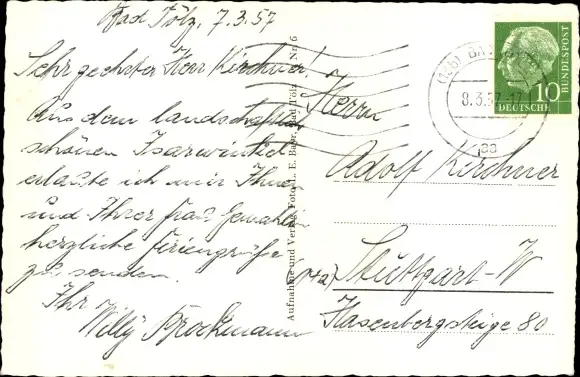 Bad Tölz, 7.3.57
Sehr geehrter Herr Kirchner!
Aus dem landschaftlich
schönen Isarwinkel
erlaube ich mir Ihnen
und Ihrer Frau Gemahlin
herzliche Feriengrüße
zu senden.
Ihr
Willy Brockmann
Aufnahme und Verlag Foto H. E. Bauer, Bad Tölz Nr. 6
Herrn
Adolf Kirchner
(14a) Stuttgart-W
Hasenbergsteige 80
10
DEUTSCHE
BUNDESPOST
BAD
8.3.57
aa